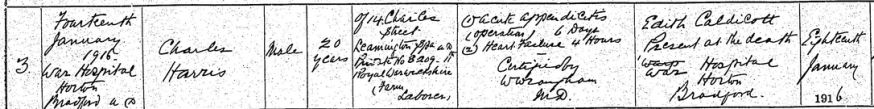 3.
Fourteenth
January
1916
War Hospital
Horton
Bradford
Charles
Harris
Male
20
years
Of 14. Charles
Street
Leamington Spa
Private No
Royal Warwickshire
(Farm
Laborer)
(1) Acute Appendicitis
(operation) 6 Days
(2) Heart Failure 4 Hours
Certified by
M.D.
Edith Caldicott
Present at the death
War Hospital
Horton
Bradford.
Eighteenth
January
1916